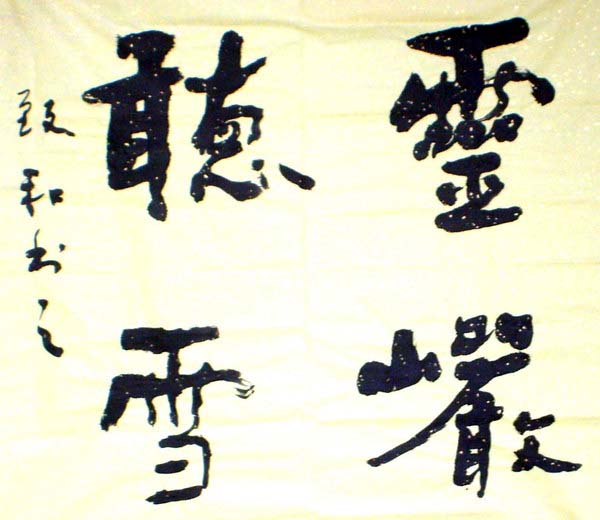 靈巖
聽雪
致和书之